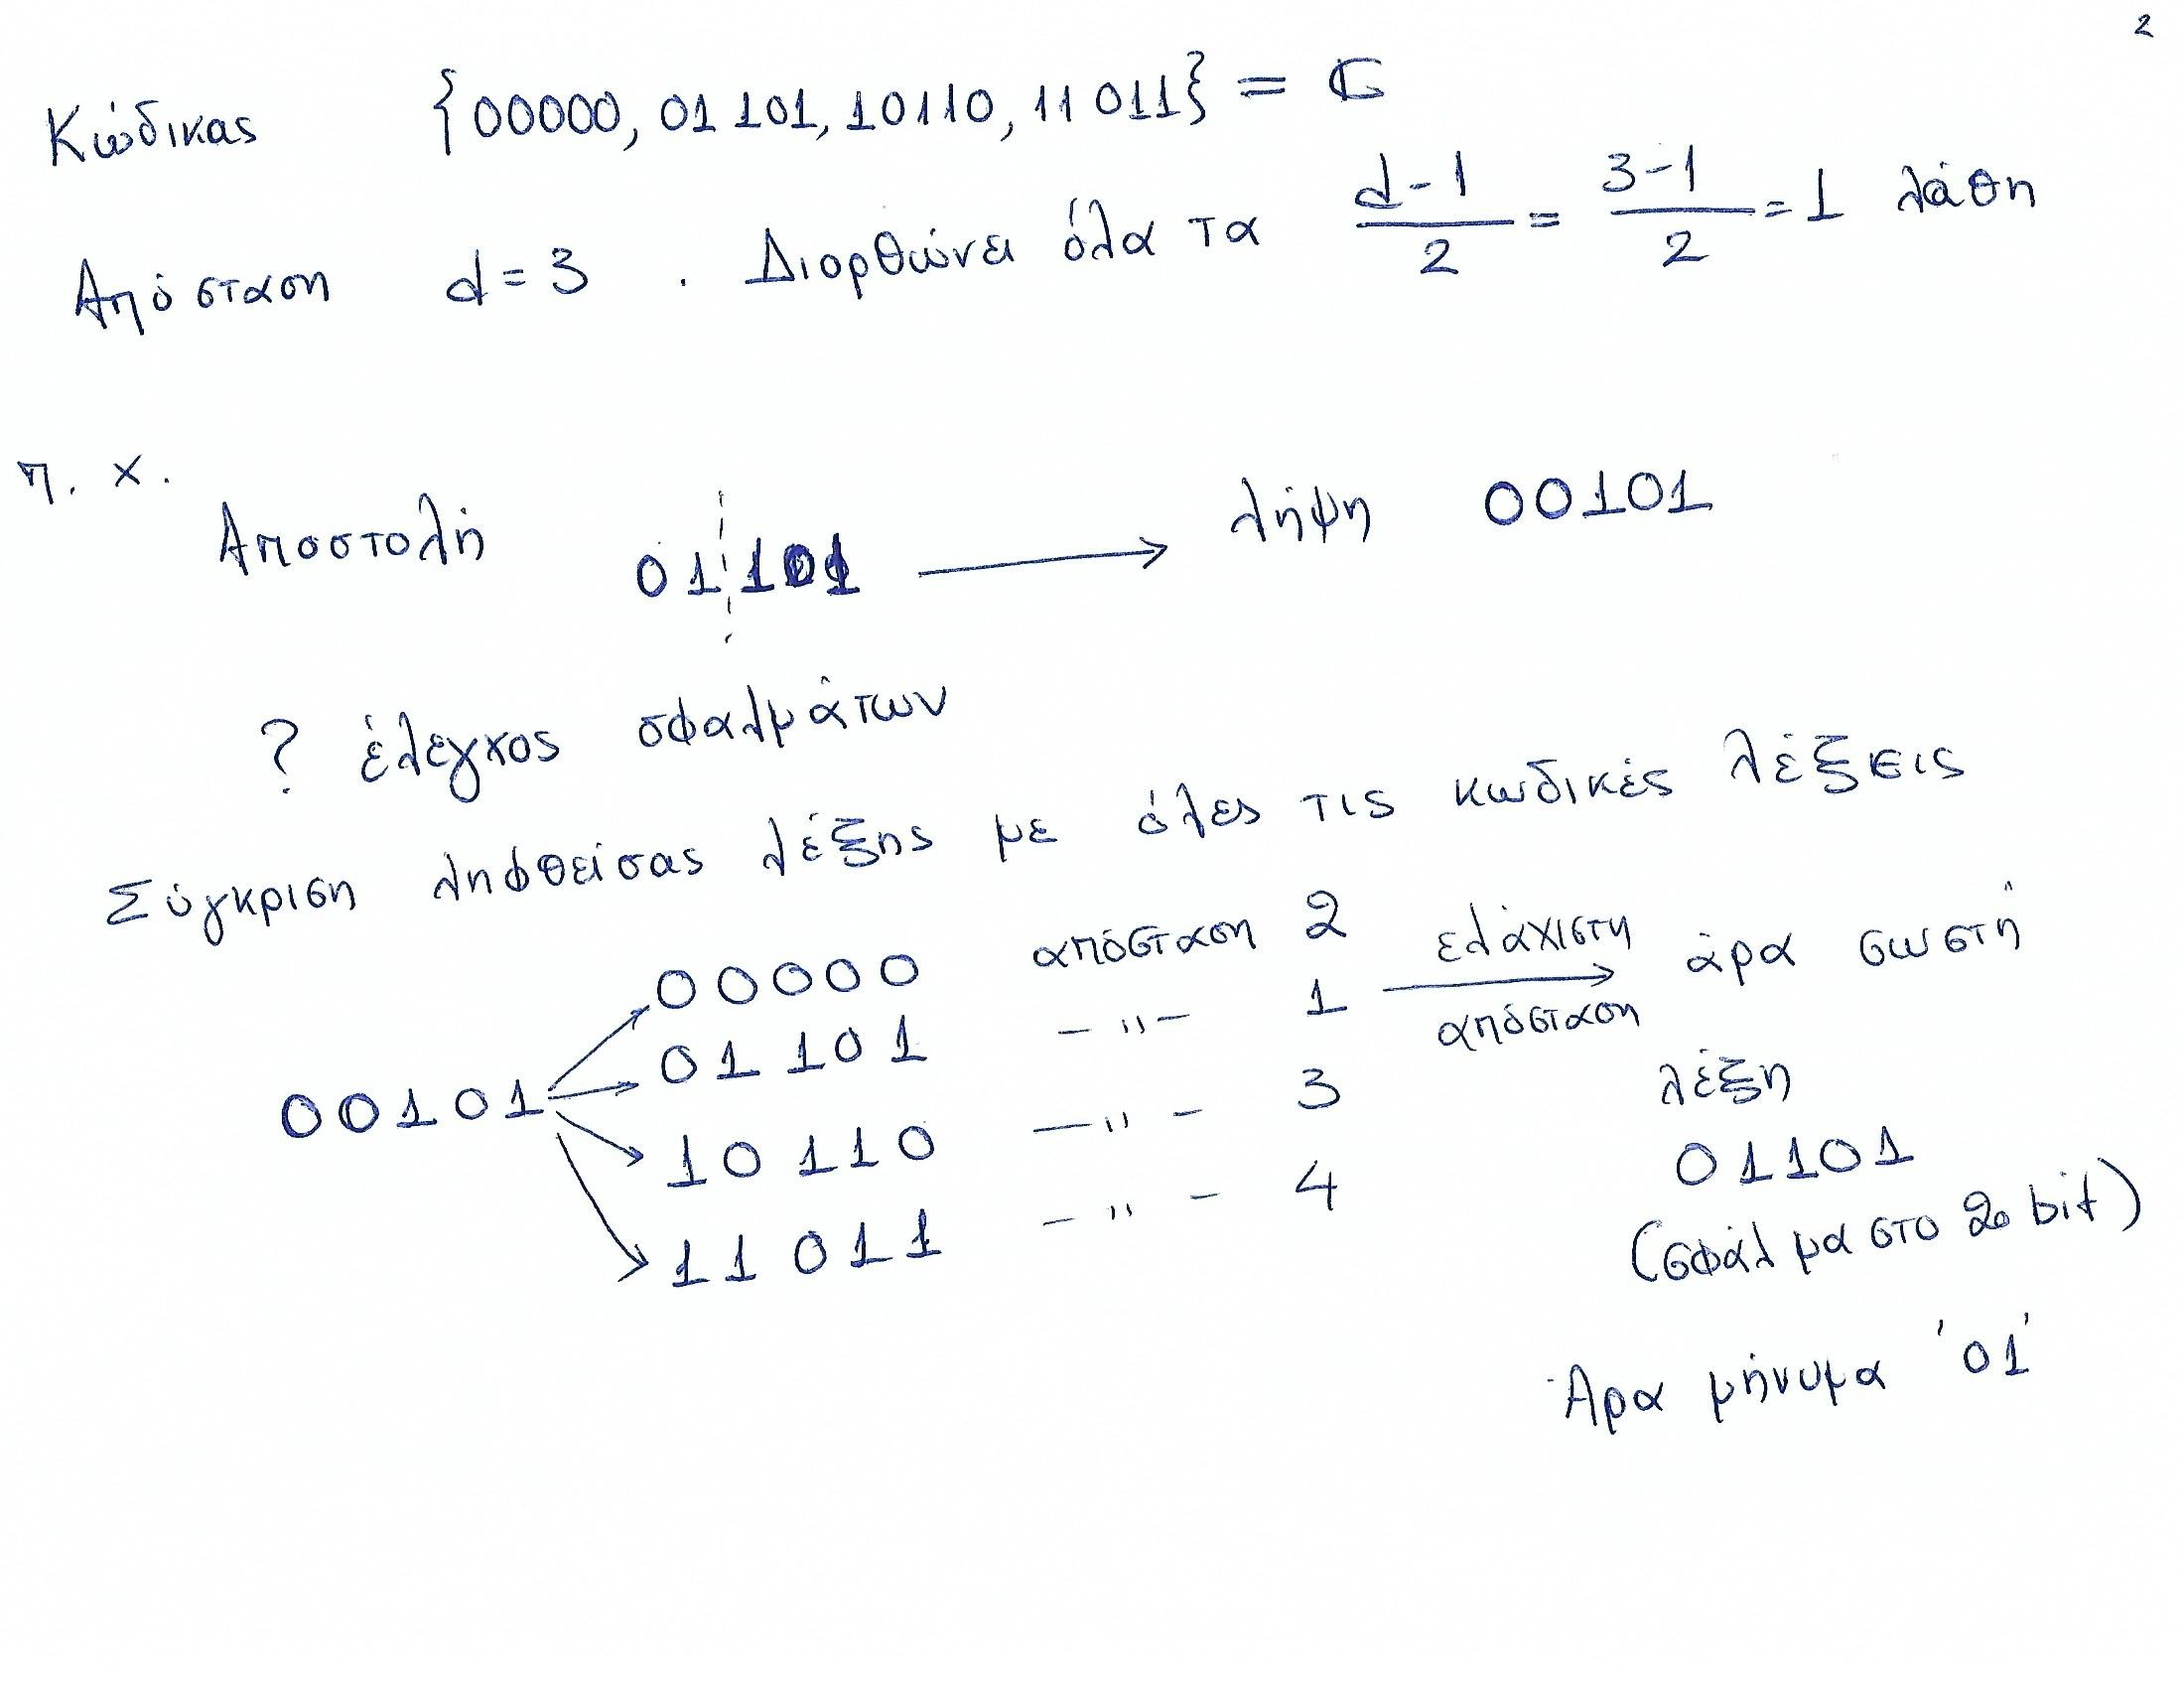 2
Κώδικας {00000, 01101, 10110, 11011} = C
Απόσταση d=3 . Διορθώνει όλα τα (d-1)/2 = (3-1)/2 = 1 λάθη
π. χ.
Αποστολή 01¦101 ⟶ λήψη 00101
? έλεγχος σφαλμάτων
Σύγκριση ληφθείσας λέξης με όλες τις κωδικές λέξεις
00000 απόσταση 2
01101 -"- 1 ελάχιστη απόσταση ⟶ άρα σωστή
00101
10110 -"- 3 λέξη
11011 -"- 4 01101
(σφάλμα στο 2ο bit)
Άρα μήνυμα '01'